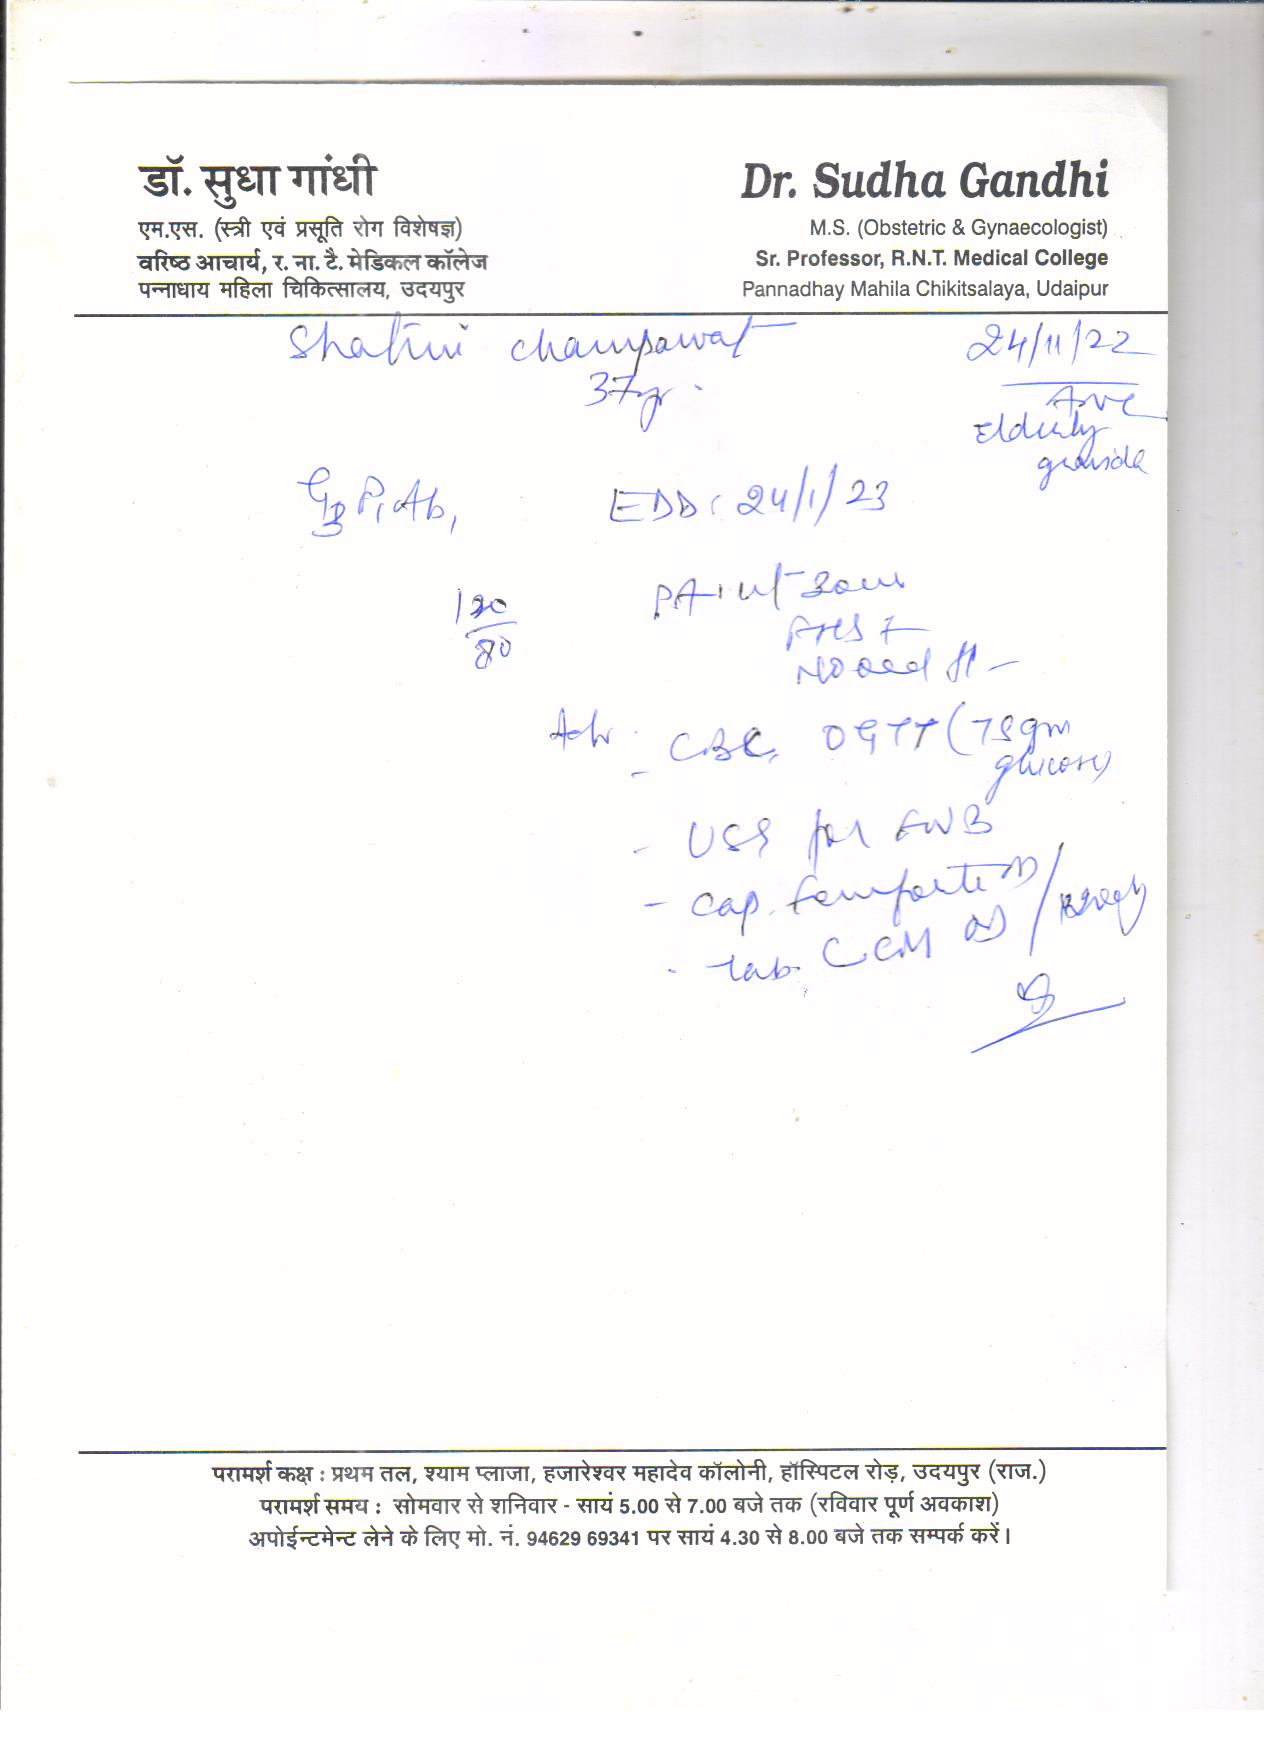 डॉ. सुधा गांधी
एम.एस. (स्त्री एवं प्रसूति रोग विशेषज्ञ)
वरिष्ठ आचार्य, र. ना. टै. मेडिकल कॉलेज
पन्नाधाय महिला चिकित्सालय, उदयपुर
Dr. Sudha Gandhi
M.S. (Obstetric & Gynaecologist)
Sr. Professor, R.N.T. Medical College
Pannadhay Mahila Chikitsalaya, Udaipur
Shalini Champawat
37yr.
24/11/22
Elderly
gravida
G3P1Ab1
EDD: 24/1/23
120/80
PA: ut
FHS +
Adv.
- CBC, OGTT (75gm
glucose)
- USG for FWB
- Cap.
- tab. CCM OD
परामर्श कक्ष : प्रथम तल, श्याम प्लाजा, हजारेश्वर महादेव कॉलोनी, हॉस्पिटल रोड़, उदयपुर (राज.)
परामर्श समय : सोमवार से शनिवार - सायं 5.00 से 7.00 बजे तक (रविवार पूर्ण अवकाश)
अपोईन्टमेन्ट लेने के लिए मो. नं. 94629 69341 पर सायं 4.30 से 8.00 बजे तक सम्पर्क करें।